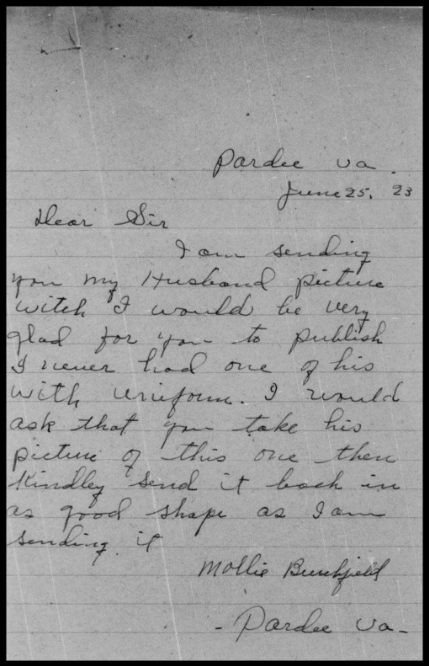 Pardee Va.
June 25, 23
Dear Sir
I am sending
you my Husband picture
witch I would be very
glad for you to publish
I never had one of his
with uniform. I would
ask that you take his
picture of this one then
Kindley send it back in
as good shape as I am
sending it
Mollie Burchfield
- Pardee Va -